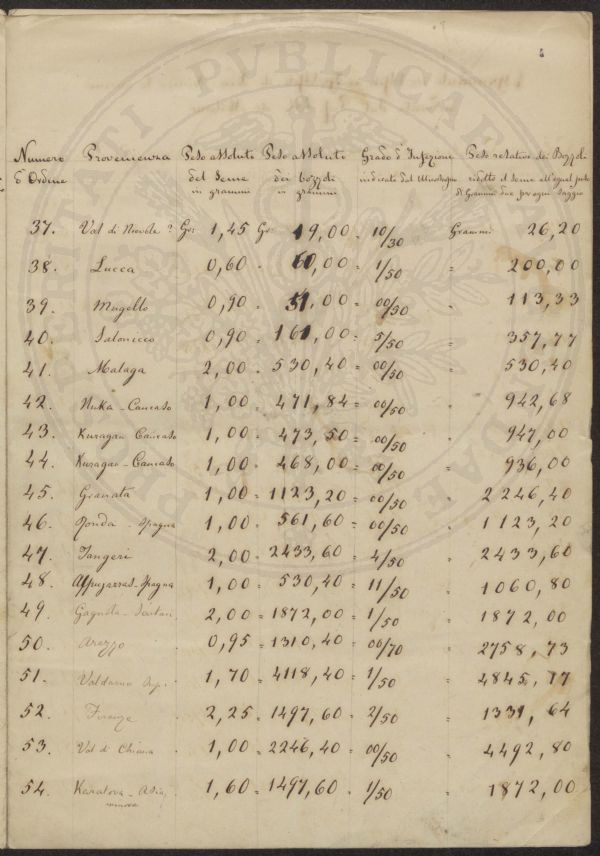 4
Numero Provenienza Peso assoluto Peso assoluto Grado d'Infezione Peso relativo dei Bozzoli
d'Ordine del Seme dei bozzoli indicato dal ridotto il seme all'egual peso
in grammi in grammi di Grammi due per ogni Saggio
37. Val di Nievole ? Gr: 1,45 Gr: 19,00 = 10/30 Grammi 26,20
38. Lucca 0,60 - 60,00 = 1/50 " 200,00
39. Mugello 0,90 - 51,00 = 00/50 " 113,33
40. Salonicco 0,90 = 161,00 = 5/50 " 357,77
41. Malaga 2,00 = 530,40 = 00/50 " 530,40
42. Nuka - Caucaso 1,00 = 471,84 = 00/50 " 942,68
43. Kuragan Caucaso 1,00 = 473,50 = 00/50 " 947,00
44. Kuragan - Caucaso 1,00 = 468,00 = 00/50 " 936,00
45. Granata 1,00 = 1123,20 = 00/50 " 2246,40
46. Ronda - Spagna 1,00 = 561,60 = 00/50 " 1123,20
47. Tangeri 2,00 = 2433,60 - 4/50 " 2433,60
48. Alpujarras - Spagna 1,00 = 530,40 = 11/50 " 1060,80
49. 2,00 = 1872,00 = 1/50 " 1872,00
50. Arezzo 0,95 = 1310,40 = 00/70 " 2758,73
51. Valdarno Sup. 1,70 = 4118,40 = 1/50 " 4845,17
52. Firenze 2,25 = 1497,60 = 2/50 " 1331,64
53. Val di Chiana 1,00 = 2246,40 = 00/50 " 4492,80
54. Karatova - Asia 1,60 = 1497,60 = 1/50 " 1872,00
minore
PUBLICAE